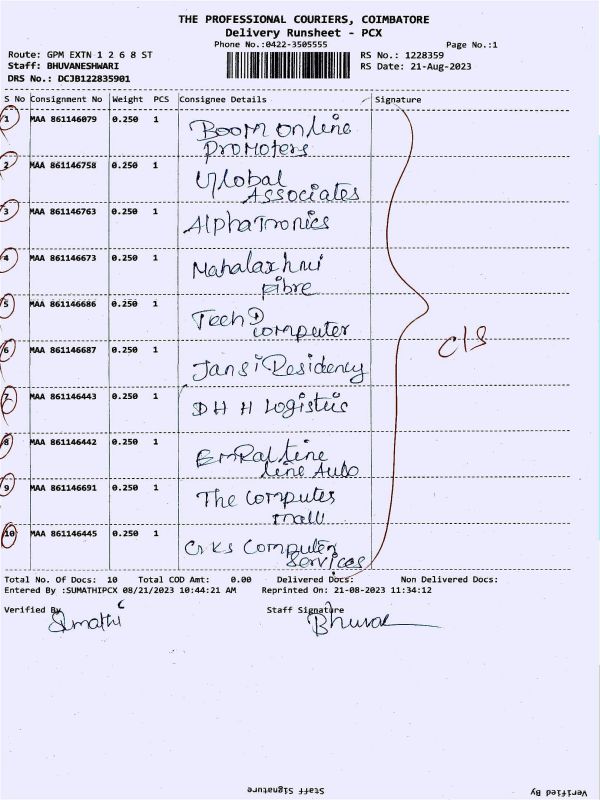 THE PROFESSIONAL COURIERS, COIMBATORE
Delivery Runsheet - PCX
Phone No.:0422-3505555 Page No.:1
Route: GPM EXTN 1 2 6 8 ST RS No.: 1228359
Staff: BHUVANESHWARI RS Date: 21-Aug-2023
DRS No.: DCJB122835901
S No Consignment No Weight PCS Consignee Details Signature
1 MAA 861146079 0.250 1 Boom online
Promoters
2 MAA 861146758 0.250 1 Global
Associates
3 MAA 861146763 0.250 1 Alphatronics
4 MAA 861146673 0.250 1 Mahalaxhmi
Fibre
5 MAA 861146686 0.250 1 Tech D
computer
c/s
6 MAA 861146687 0.250 1 Jansi Residency
7 MAA 861146443 0.250 1 DH H Logistic
8 MAA 861146442 0.250 1 line
line Auto
9 MAA 861146691 0.250 1 The Computer
mall
10 MAA 861146445 0.250 1 Computer
Services
Total No. Of Docs: 10 Total COD Amt: 0.00 Delivered Docs: Non Delivered Docs:
Entered By :SUMATHIPCX 08/21/2023 10:44:21 AM Reprinted On: 21-08-2023 11:34:12
Verified By Staff Signature
Sumathi Bhuva
Staff Signature Verified By